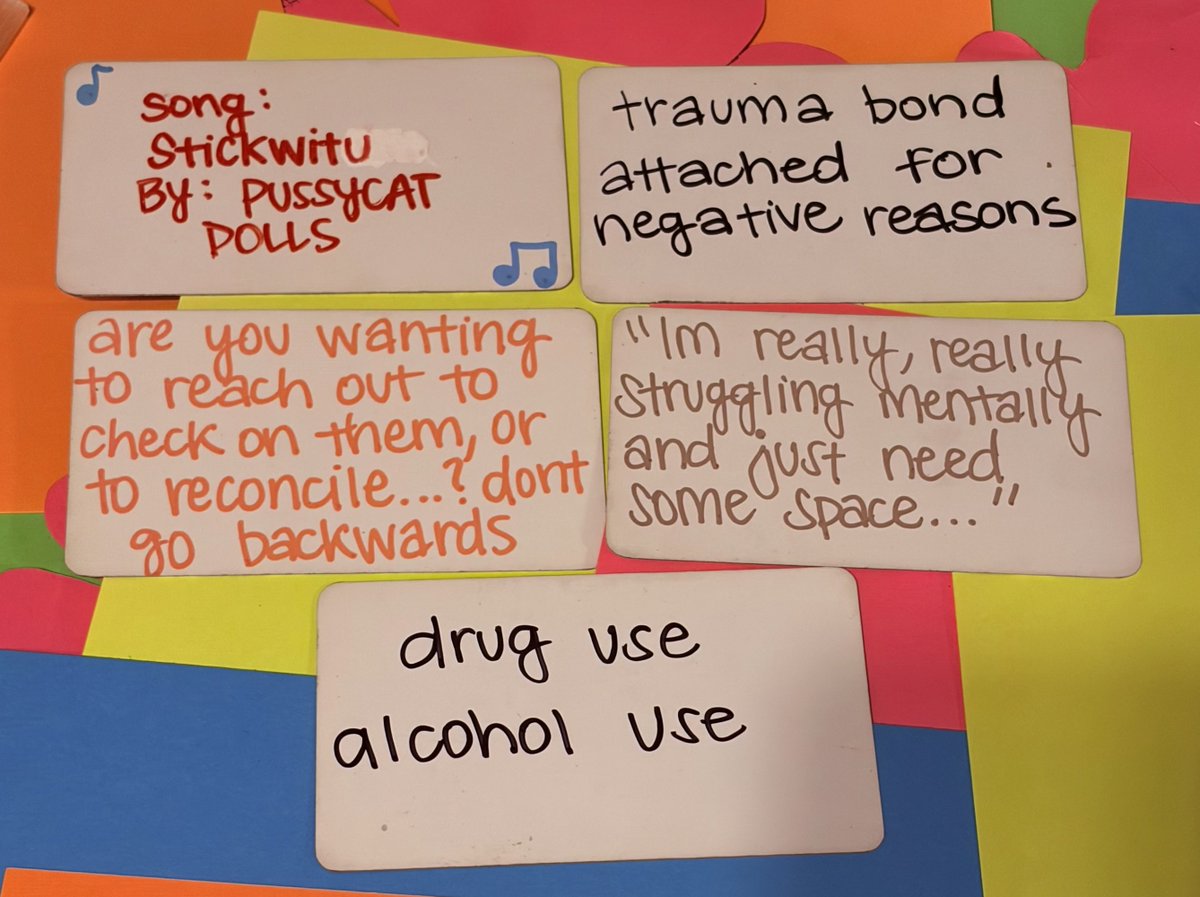 song:
Stickwitu
BY: PUSSYCAT
DOLLS
trauma bond
attached for
negative reasons
are you wanting
to reach out to
check on them, or
to reconcile...? dont
go backwards
"Im really, really
struggling mentally
and just need
some space..."
drug use
alcohol use